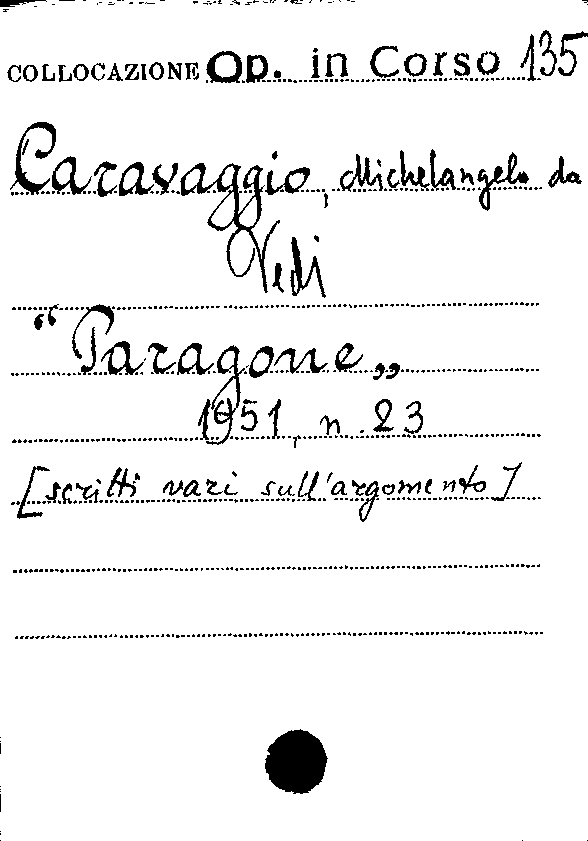 COLLOCAZIONE Op. in Corso 135
Caravaggio, Michelangelo da
Vedi
“Paragone„
1951, n. 23
[scritti vari sull'argomento]